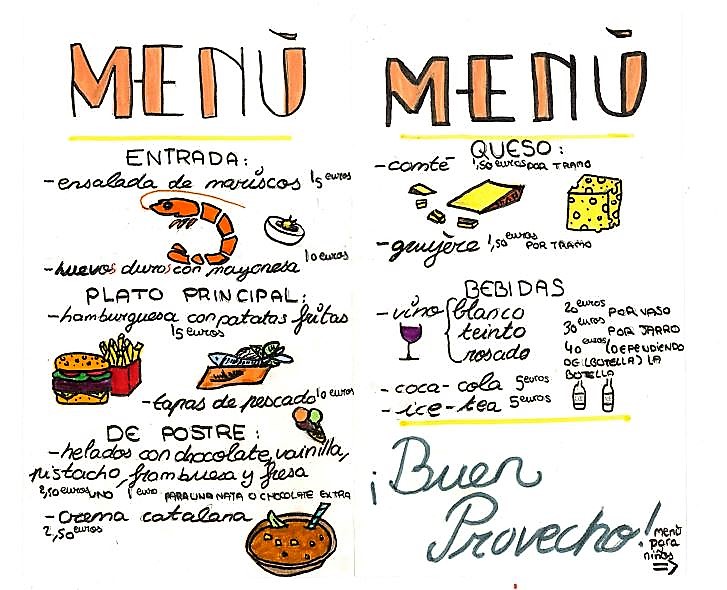 MENÙ
ENTRADA:
-ensalada de mariscos 15 euros
-huevos duros con mayonesa 10 euros
PLATO PRINCIPAL:
-hamburguesa con patatas fritas
15 euros
-tapas de pescado 10 euros
DE POSTRE:
-helados con chocolate, vainilla,
pistacho, frambuesa y fresa
2,50 euros UNO 1 euro PARA UNA NATA O CHOCOLATE EXTRA
-crema catalana
2,50 euros
MENÙ
QUESO:
-comté 1,50 euros POR TRAMO
-gruyère 1,50 euros POR TRAMO
BEBIDAS
-vino { blanco 20 euros POR VASO
teinto 30 euros POR JARRO
rosado 40 euros (DEPENDIENDO
DE (BOTELLA) LA
BOTELLA
-coca-cola 5 euros
-ice-tea 5 euros
¡Buen
Provecho!
menù
para
niños